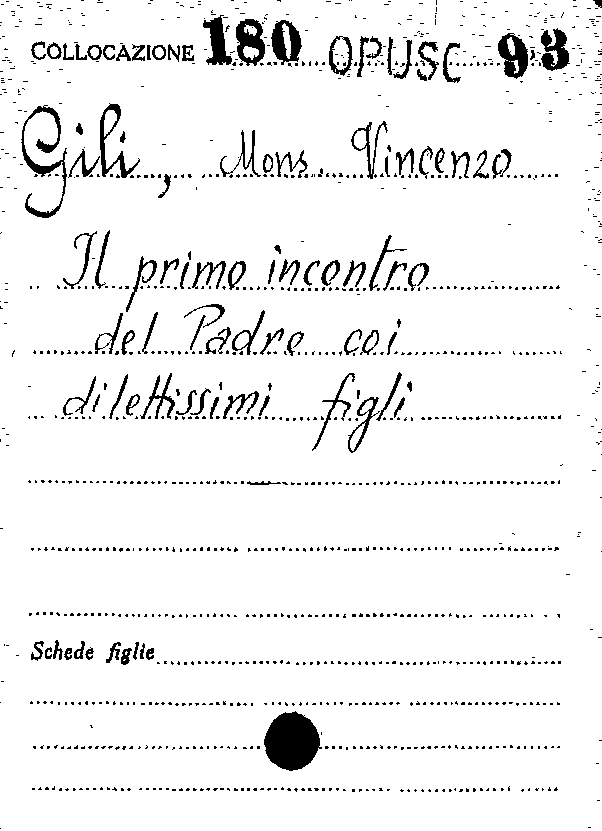 COLLOCAZIONE 180 OPUSC 93
Gili, Mons. Vincenzo
Il primo incontro
del Padre coi
dilettissimi figli
Schede figlie